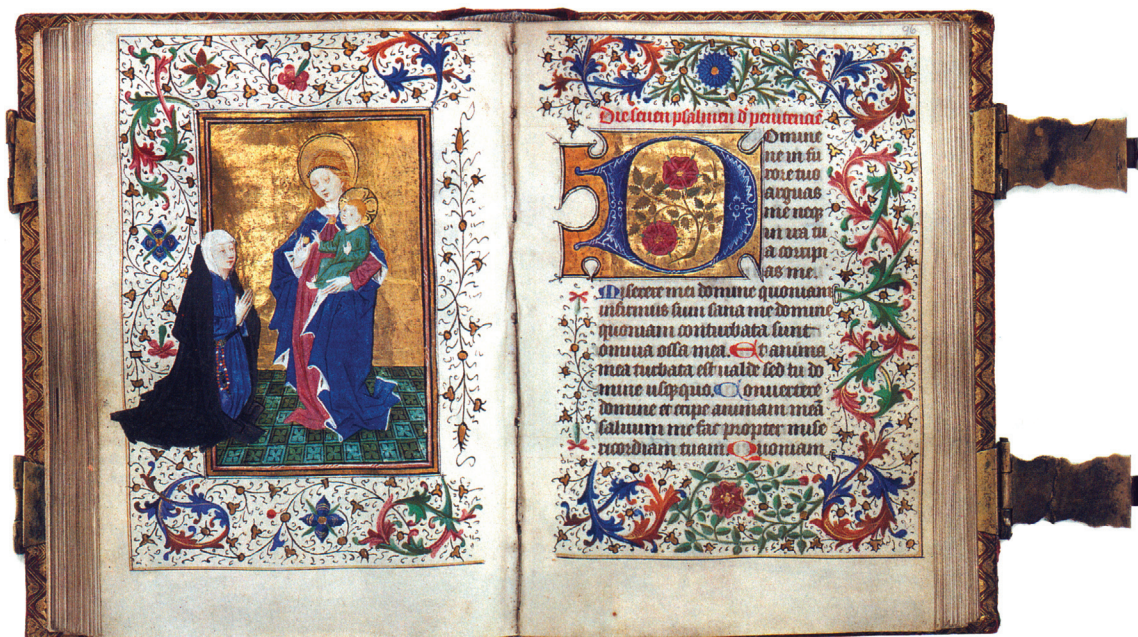 96
Die seuen psalmen d penitencie
Domine
ne in fu
rore tuo
arguas
me neq;
in ira tu
a corripi
as me
Miserere mei domine quoniam
infirmus sum sana me domine
quoniam conturbata sunt
omnia ossa mea. Et anima
mea turbata est ualde sed tu do
mine usquequo. Conuertere
domine et eripe animam meā
saluum me fac propter mise
ricordiam tuam. Quoniam